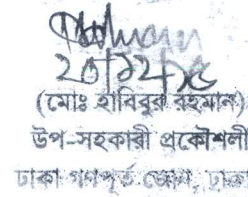 ২০/১২/১৫
(মোঃ হাবিবুর রহমান)
উপ-সহকারী প্রকৌশলী
ঢাকা গণপূর্ত জোন, ঢাকা